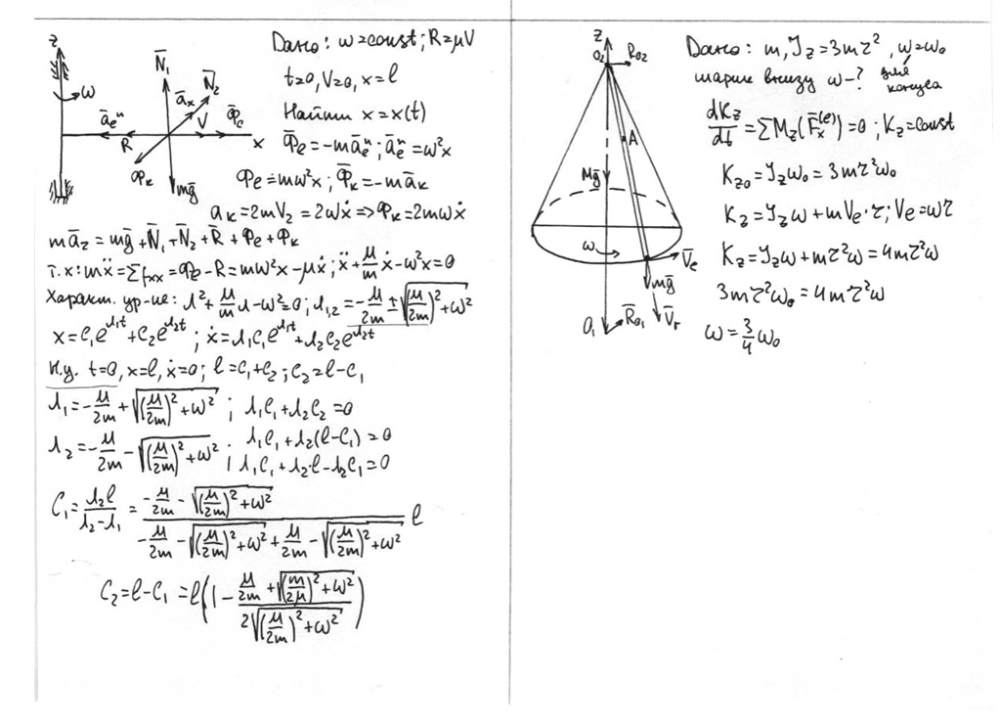 Дано: ω=const; R=μV
t=0, V=0, x=l
Найти x=x(t)
Φ̄e=-māeⁿ; āeⁿ=ω²x
Φe=mω²x; Φ̄к=-māк
aк=2mV2=2ωẋ=>Φк=2mωẋ
z
ω
N̄1
N̄2
āк
āeⁿ
R
V
Φ̄e
x
Φк
mḡ
māz=mḡ+N̄1+N̄2+R̄+Φe+Φк
т.x: mẍ=∑Fкx=Φe-R=mω²x-μẋ; ẍ+μ/m ẋ-ω²x=0
Характ. ур-ие: λ²+μ/m λ-ω²=0; λ1,2=-μ/2m±√((μ/2m)²+ω²)
x=C1e^λ1t+C2e^λ2t; ẋ=λ1C1e^λ1t+λ2C2e^λ2t
Н.у. t=0, x=l, ẋ=0; l=C1+C2; C2=l-C1
λ1=-μ/2m+√((μ/2m)²+ω²); λ1C1+λ2C2=0
λ2=-μ/2m-√((μ/2m)²+ω²); λ1C1+λ2(l-C1)=0
; λ1C1+λ2l-λ2C1=0
C1=λ2l/(λ2-λ1)=(-μ/2m-√((μ/2m)²+ω²))/(-μ/2m-√((μ/2m)²+ω²)+μ/2m-√((μ/2m)²+ω²)) l
C2=l-C1=l(1-(μ/2m+√((m/2μ)²+ω²))/(2√((μ/2m)²+ω²)))
z
O2
R̄O2
A
Mḡ
ω
V̄e
mḡ
V̄r
O1
R̄O1
Дано: m, Jz=3mr², ω=ω0
шарик внизу ω-? для конуса
dKz/dt=∑Mz(F̄x^(e))=0; Kz=const
Kz0=Jzω0=3mr²ω0
Kz=Jzω+mVe·r; Ve=ωr
Kz=Jzω+mr²ω=4mr²ω
3mr²ω0=4mr²ω
ω=3/4 ω0